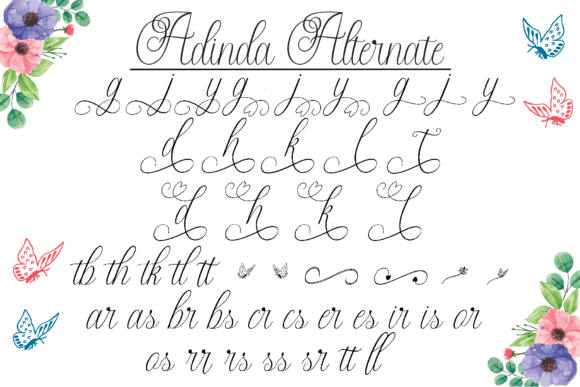 Adinda Alternate
g j y g j y g j y
d h k l t
d h k l
tb th tk tl tt
ar as br bs cr cs er es ir is or
os rr rs ss sr tt ll